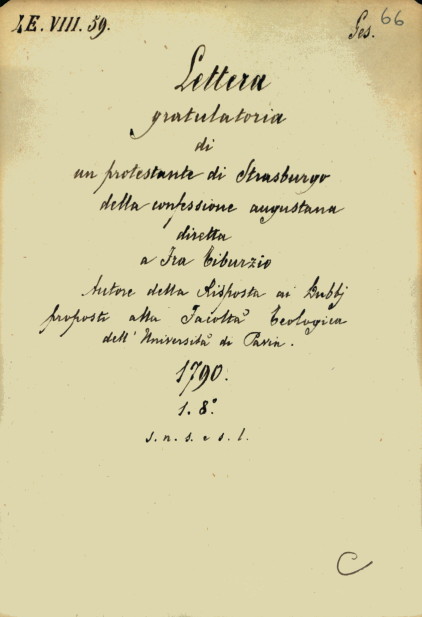 AE. VIII. 59.
Ges. 66
Lettera
gratulatoria
di
un protestante di Strasburgo
della confessione augustana
diretta
a Fra Tiburzio
Autore della Risposta ai Dubbj
proposti alla Facoltà Teologica
dell' Università di Pavia.
1790.
1. 8.º
s. n. s. e s. l.
C